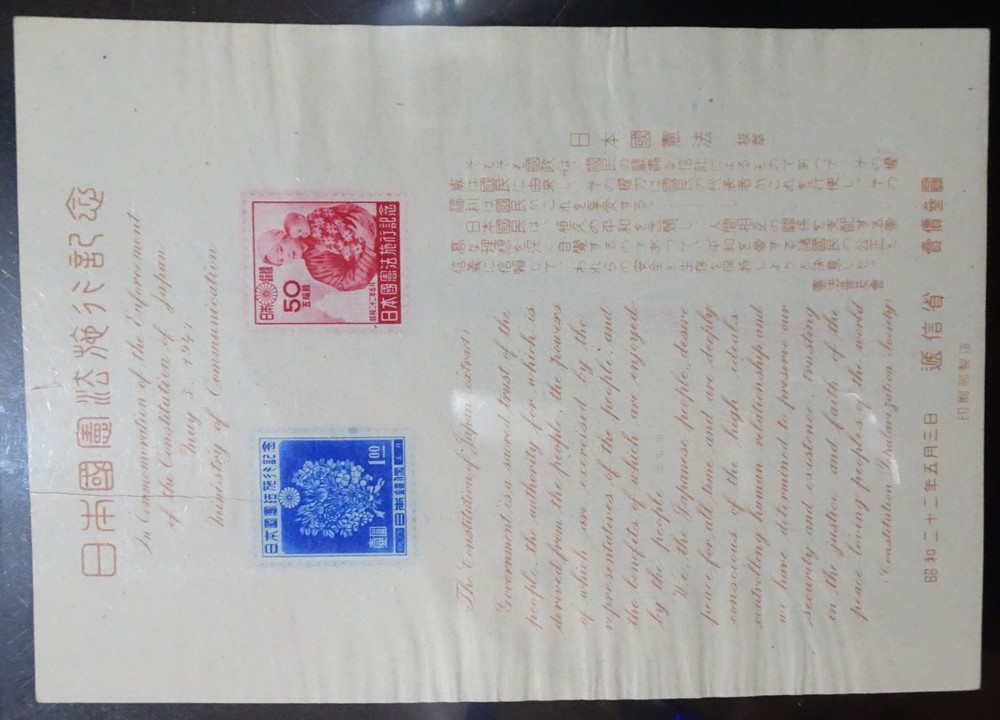 日本國憲法施行記念
In Commemoration of the Enforcement
of the Constitution of Japan
May 3. 1947
Ministry of Communication
日本國憲法施行記念
1.00
壹圓
日本郵便
日本國憲法施行記念
50
五拾錢
日本郵便
日本國憲法 抜萃
そもそも國政は、國民の嚴肅な信託によるものであつて、その權
威は國民に由來し、その權力は國民の代表者がこれを行使し、その
福利は國民がこれを享受する。
日本國民は、恒久の平和を念願し、人間相互の關係を支配する崇
高な理想を深く自覺するのであつて、平和を愛する諸國民の公正と
信義に信賴して、われらの安全と生存を保持しようと決意した。
憲法普及會
The Constitution of Japan (extract)
Government is a sacred trust of the
people, the authority for which is
derived from the people, the powers
of which are exercised by the
representatives of the people, and
the benefits of which are enjoyed
by the people.
We, the Japanese people, desire
peace for all time and are deeply
conscious of the high ideals
controlling human relationship, and
we have determined to preserve our
security and existence, trusting
in the justice and faith of the
peace-loving peoples of the world.
(Constitution Popularization Society)
昭和二十二年五月三日 遞信省
印刷局製造